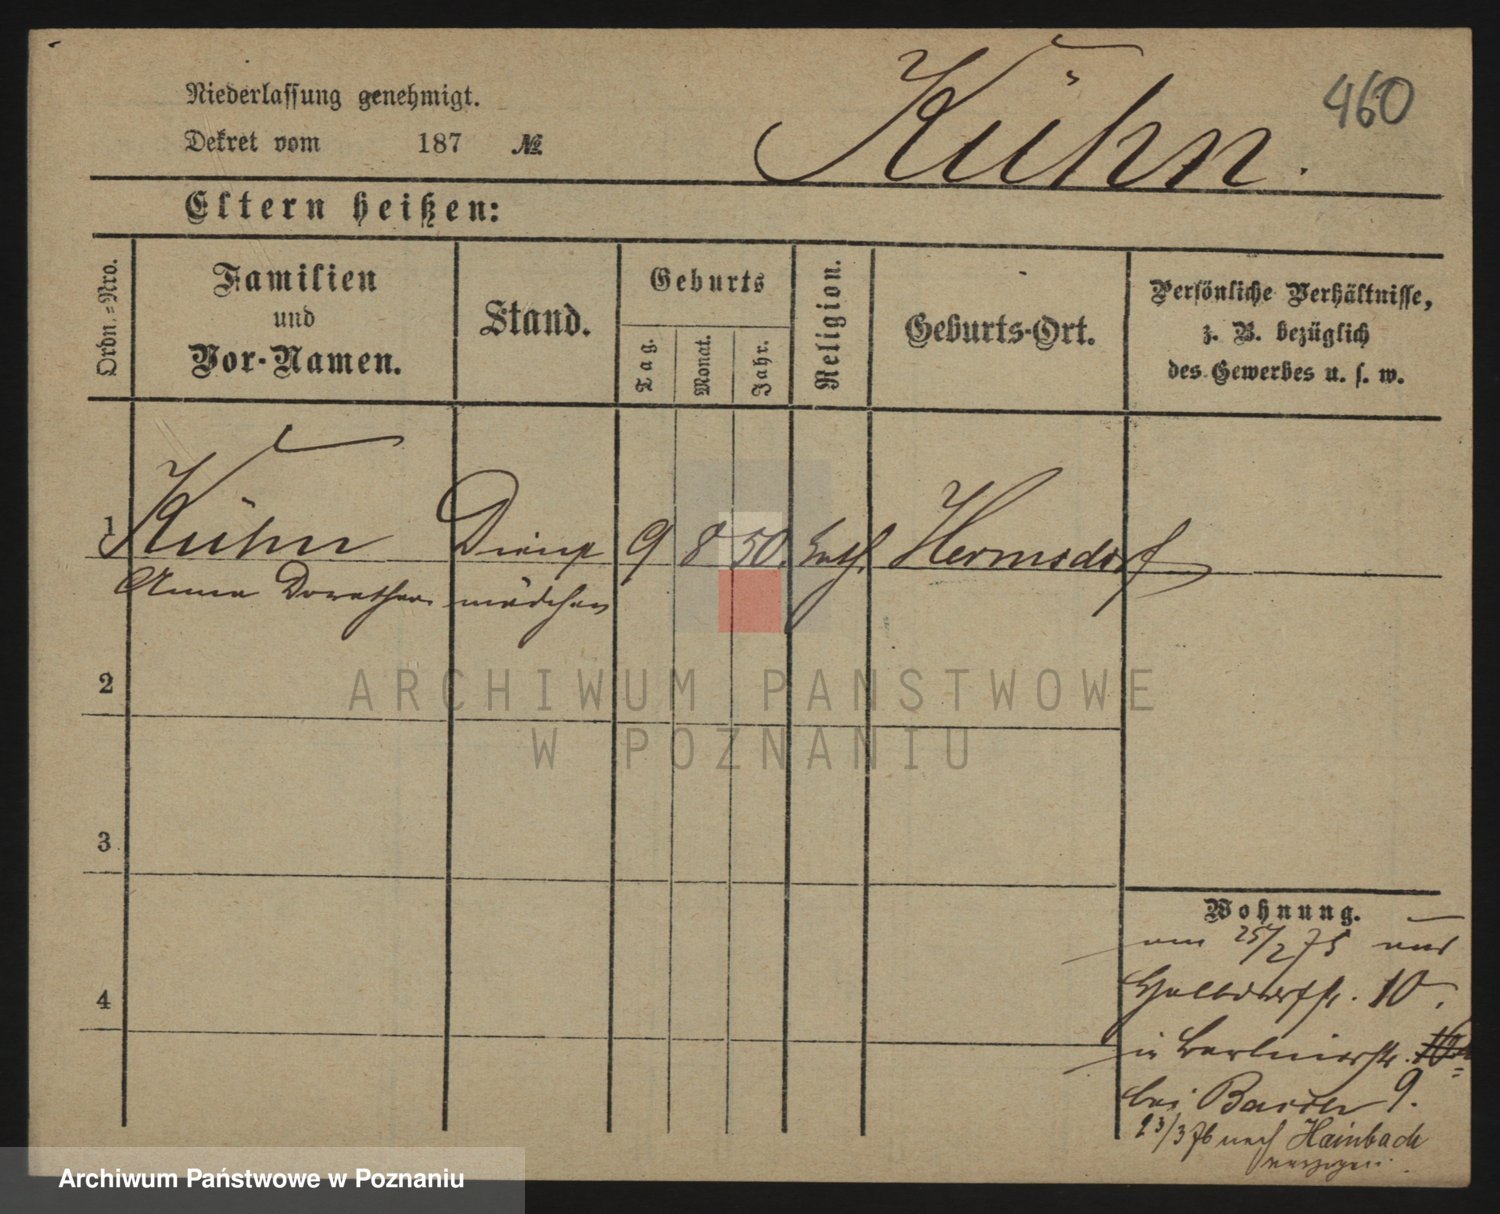 Niederlassung genehmigt.
Dekret vom 187 №
Kühn.
460
Eltern heißen:
Ordn.-Nro.
Familien
und
Vor-Namen.
Stand.
Geburts
Tag.
Monat.
Jahr.
Religion.
Geburts-Ort.
Persönliche Verhältnisse,
z. B. bezüglich
des Gewerbes u. s. w.
1 Kühn Dienst 9 8 50. kath. Hermsdorf
Anna Dorothea mädchen
2
3
4
Wohnung.
am 25/2 75 aus
Halbdorfstr. 10.
in Berlinerstr.
bei 9.
23/3 76 nach Hainbach
verzogen.
ARCHIWUM PAŃSTWOWE
W POZNANIU
Archiwum Państwowe w Poznaniu